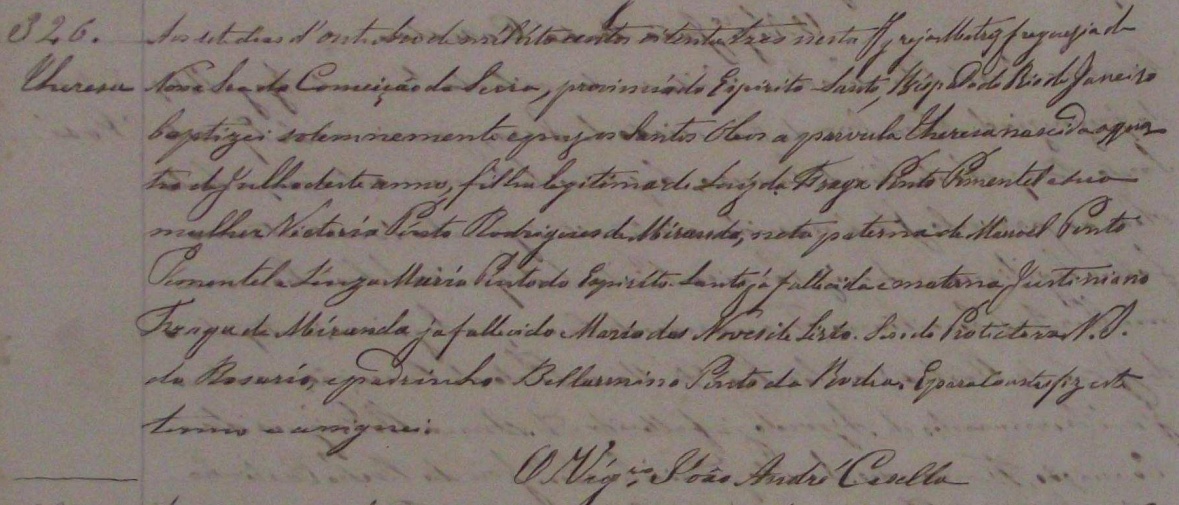 326.
Theresa
Aos sete dias d'outubro de mil oito centos oitenta tres nesta Igreja Matriz freguezia de
Nossa Sra da Conceição da Serra, provincia do Espirito Santo, Bispado do Rio de Janeiro
baptizei solemnemente e puz os Santos Oleos a parvula Theresa nascida a qua
tro de Julho deste anno, filha legitima de Luiz da Fraga Pinto Pimentel e sua
mulher Victoria Pinto Rodrigues de Miranda, neta paterna de Manoel Pinto
Pimentel e Maria Pinto do Espirito Santo já fallecida e materna Justiniano
Fraga de Miranda ja fallecido Maria das Neves de Protectora N. S.
do Rosario, e padrinho Bellarmino Pinto da Rocha. E para constar fiz este
termo e assignei.
O Vigro João André Casella